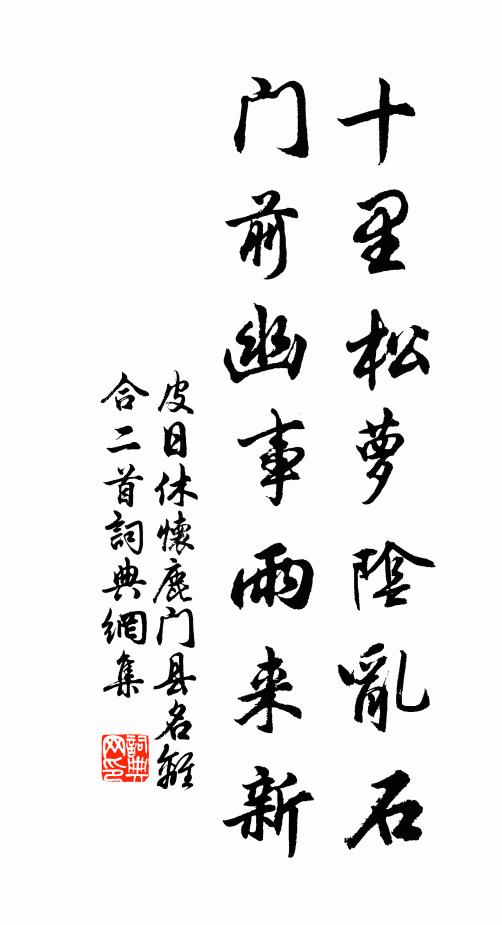 十里松萝陰亂石
门前幽事雨来新
皮日休懷鹿门县名離
合二首詞典網集
詞典
网印